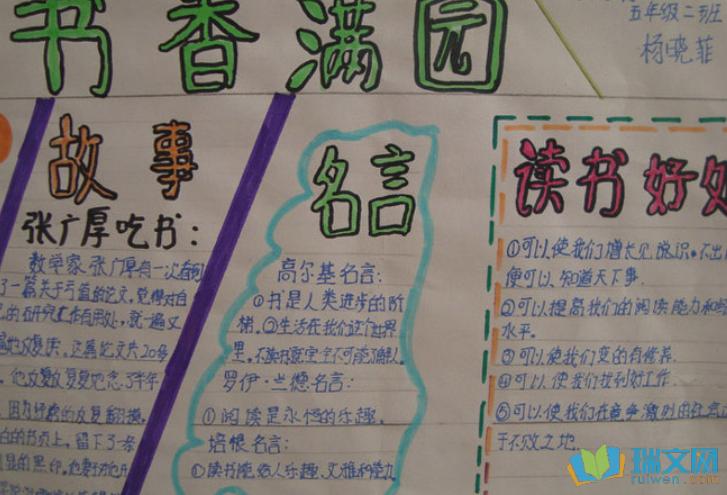 书香满园
五年级二班
杨晓菲
故事
张广厚吃书：
数学家张广厚有一次看到
了一篇关于亏值的论文，觉得对自
的研究工作有用处，就一遍又
地反复读。这篇论文共20多
他反反复复地念了半年
因为经常的反复翻摸，
白的书页上，留下了一条
显的黑印，他妻子对他开
名言
高尔基名言：
①书是人类进步的阶
梯。②生活在我们这个世界
里，不读书就完全不可能了解人。
罗伊·兰德名言：
①阅读是永恒的乐趣。
培根名言：
①读书能给人乐趣、文雅和能力。
读书好处
①可以使我们增长见识。不出
便可以知道天下事.
②可以提高我们的阅读能力和
水平。
③可以使我们变的有修养.
④可以使我们找到好工作.
⑤可以使我们在竞争激烈的社会立
于不败之地.
瑞文网
ruiwen.com